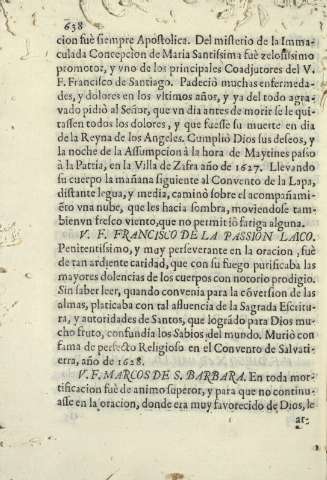 638
cion fuè siempre Apostolica. Del misterio de la Imma-
culada Concepcion de Maria Santissima fuè zelosissimo
promotor, y vno de los principales Coadjutores del V.
F. Francisco de Santiago. Padeciò muchas enfermeda-
des, y dolores en los vltimos años, y ya del todo agra-
vado pidiò al Señor, que vn dia antes de morir se le qui-
tassen todos los dolores, y que fuesse su muerte en dia
de la Reyna de los Angeles. Cumpliò Dios sus deseos, y
la noche de la Assumpcion à la hora de Maytines passo
à la Patria, en la Villa de Zafra año de 1627. Llevando
su cuerpo la mañana siguiente al Convento de la Lapa,
distante legua, y media, caminò sobre el acompañami-
ēto vna nube, que les hacia sombra, moviendose tam-
bien vn fresco viento, que no permitiò fatiga alguna.
V. F. FRANCISCO DE LA PASSION LAICO.
Penitentissimo, y muy perseverante en la oracion, fuè
de tan ardiente caridad, que con su fuego purificaba las
mayores dolencias de los cuerpos con notorio prodigio.
Sin saber leer, quando convenia para la cōversion de las
almas, platicaba con tal afluencia de la Sagrada Escritu
ra, y autoridades de Santos, que logrādo para Dios mu-
cho fruto, confundia los Sabios del mundo. Muriò con
fama de perfecto Religioso en el Convento de Salvati-
erra, año de 1628.
V. F. MARCOS DE S. BARBARA. En toda mor-
tificacion fuè de animo superor, y para que no continu-
asse en la oracion, donde era muy favorecido de Dios, le
ar-